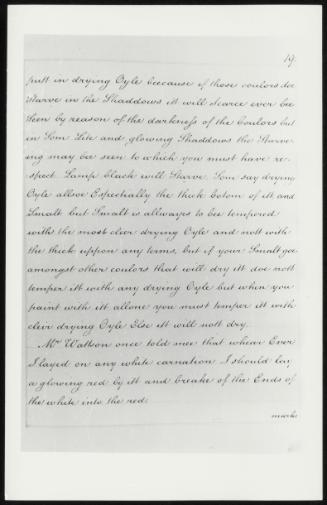 19.
putt in drying Oyle because if those coulors doe
starve in the Shaddows itt will scarce ever bee
seen by reason of the darkness of the Coulors but
in Som Lite and glowing Shaddows the Starve-
ing may bee seen to which you must have re-
spect Lamp black will Starve Som say drying
Oyle allsoe Espechially the thick botom of itt and
Smalt but Smalt is allways to bee tempored
with the most cleer drying Oyle and nott with
the thick uppon any terms, but if your Smalt goe
amongst other coulors that will dry itt doe nott
temper itt with any drying Oyle but when you
paint with itt allone you must temper itt with
cleer drying Oyle Else itt will nott dry.
Mr Wattson once told mee that whear Ever
I layed on any white carnation I should lay
a glowing red by itt and breake of the Ends of
the white into the red:
marke